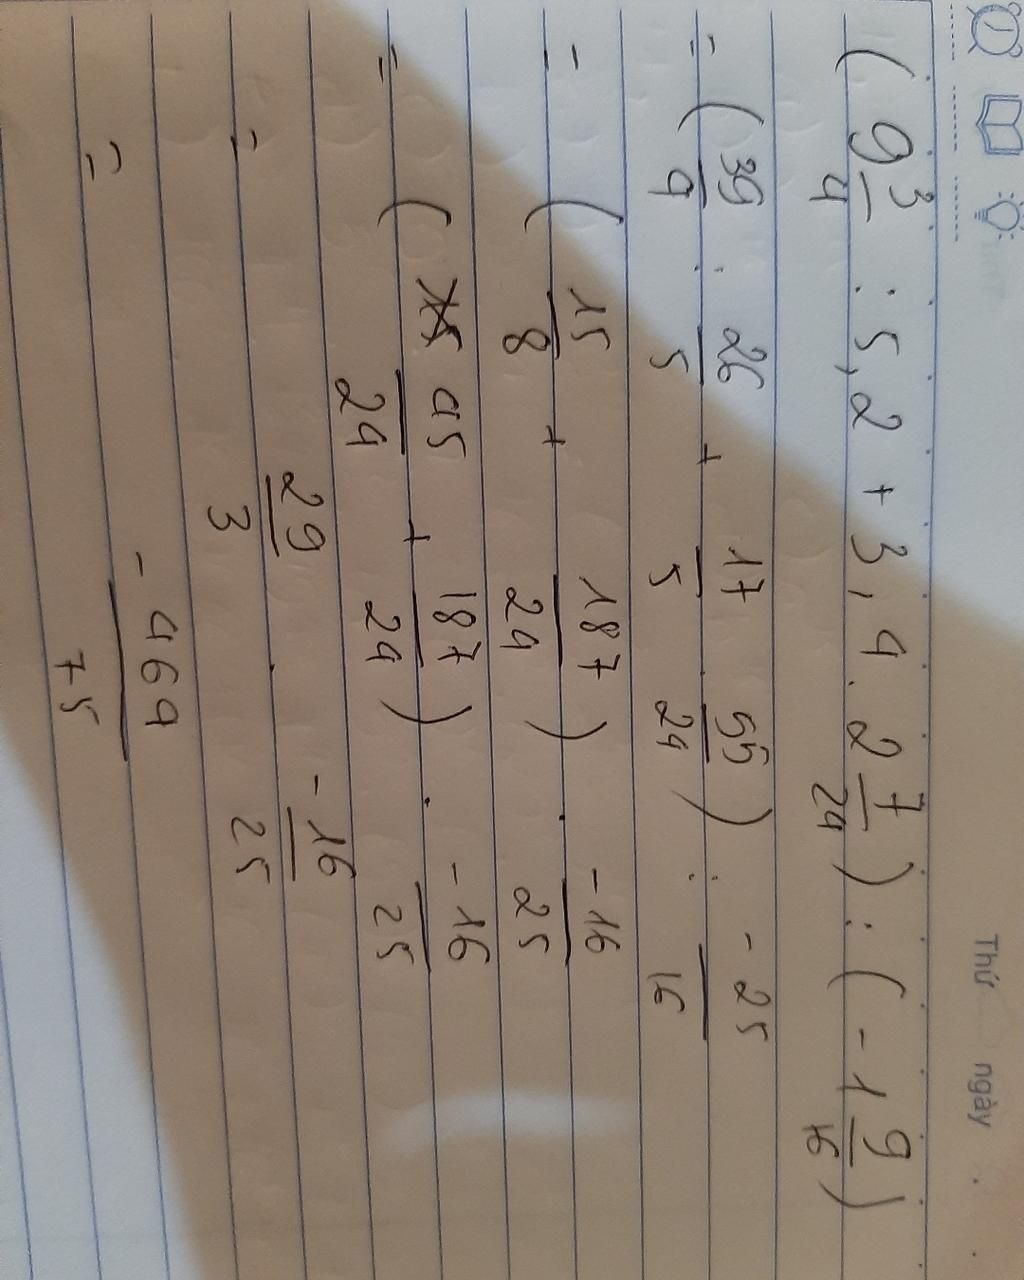 Thứ ngày
(9 3/4 : 5,2 + 3,4 . 2 7/24) : (-1 9/16)
= (39/4 : 26/5 + 17/5 . 55/24) : -25/16
= (15/8 + 187/24) . -16/25
= (45/24 + 187/24) . -16/25
= 29/3 . -16/25
= -464/75